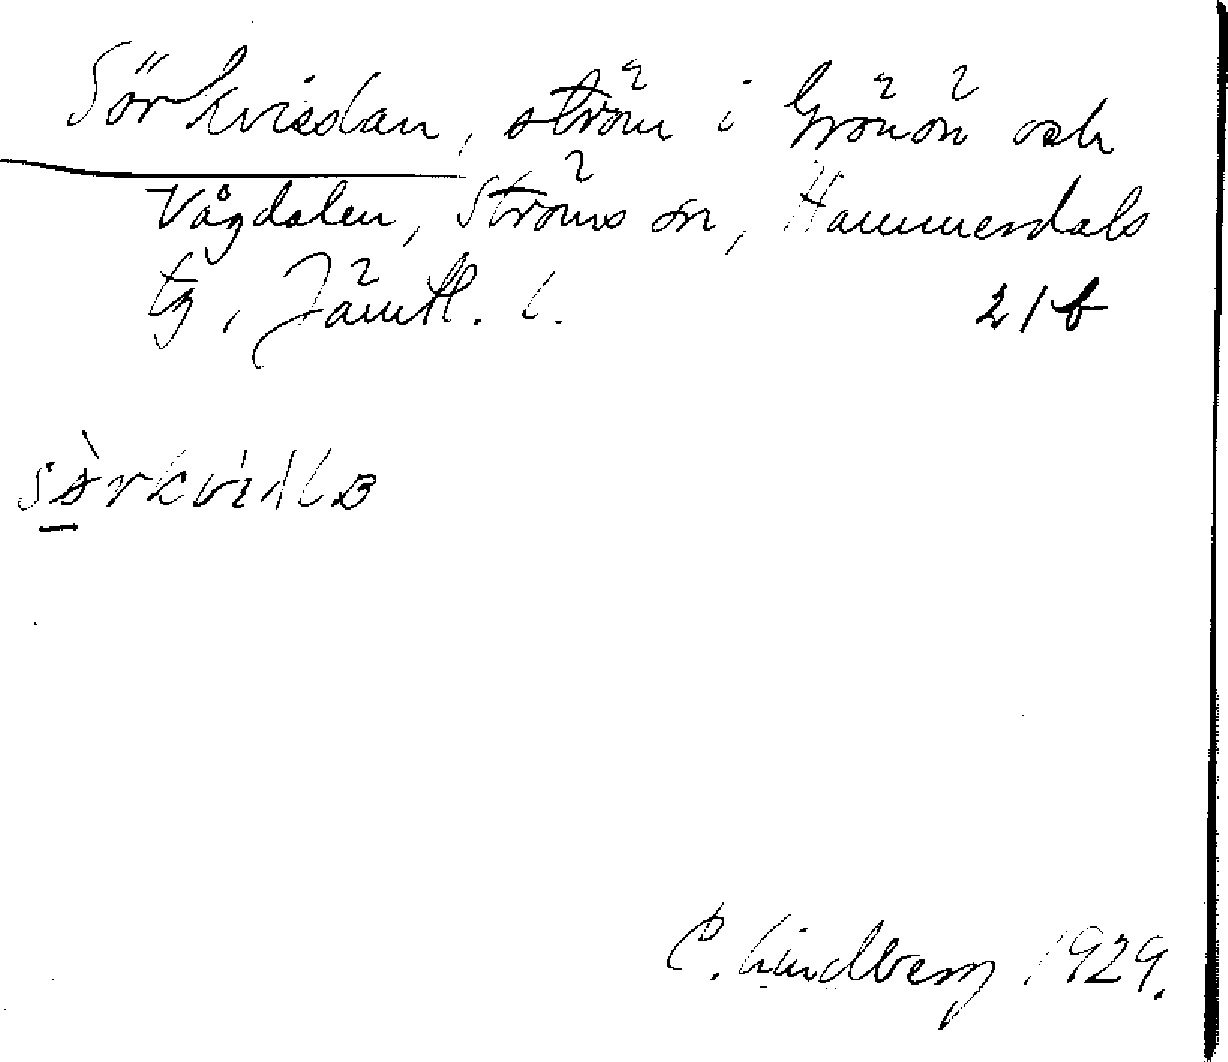 Sörkvislan, ström i Grönön och
Vågdalen, Ströms sn, Hammerdals
tg, Jämtl. l. 21b
C. Lindberg 1929.